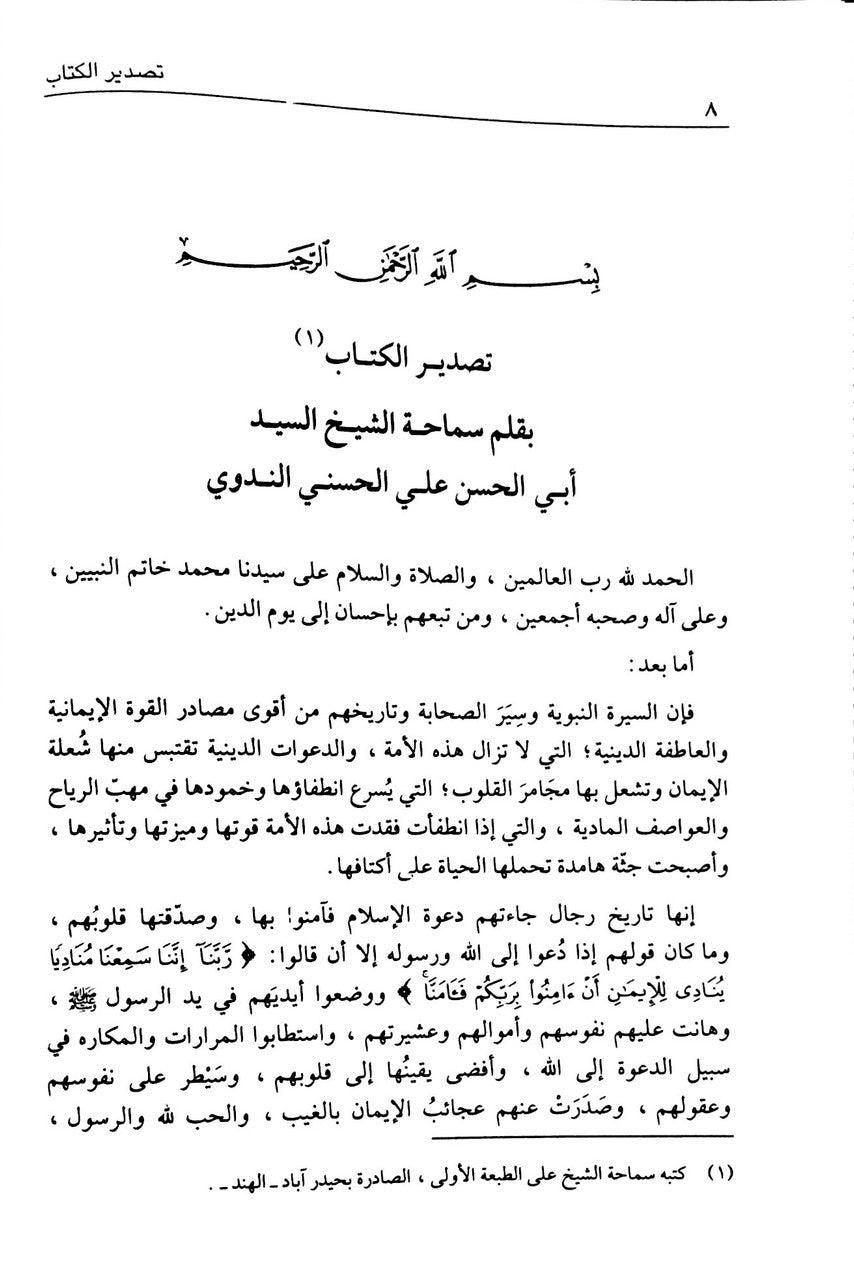 تصدير الكتاب
٨
بِسْمِ ٱللَّهِ ٱلرَّحْمَٰنِ ٱلرَّحِيمِ
تصدير الكتاب(١)
بقلم سماحة الشيخ السيد
أبي الحسن علي الحسني الندوي
الحمد لله رب العالمين ، والصلاة والسلام على سيدنا محمد خاتم النبيين ،
وعلى آله وصحبه أجمعين ، ومن تبعهم بإحسان إلى يوم الدين .
أما بعد :
فإن السيرة النبوية وسِيَرَ الصحابة وتاريخهم من أقوى مصادر القوة الإيمانية
والعاطفة الدينية؛ التي لا تزال هذه الأمة ، والدعوات الدينية تقتبس منها شُعلة
الإيمان وتشعل بها مجَامرَ القلوب؛ التي يُسرع انطفاؤها وخمودها في مهبّ الرياح
والعواصف المادية ، والتي إذا انطفأت فقدت هذه الأمة قوتها وميزتها وتأثيرها ،
وأصبحت جثّة هامدة تحملها الحياة على أكتافها .
إنها تاريخ رجال جاءتهم دعوة الإسلام فآمنوا بها ، وصدّقتها قلوبُهم ،
وما كان قولهم إذا دُعوا إلى الله ورسوله إلا أن قالوا: ﴿ رَّبَّنَآ إِنَّنَا سَمِعْنَا مُنَادِيًا
يُنَادِى لِلْإِيمَٰنِ أَنْ ءَامِنُوا۟ بِرَبِّكُمْ فَـَٔامَنَّا ۚ ﴾ ووضعوا أيديَهم في يد الرسول ﷺ ،
وهانت عليهم نفوسهم وأموالهم وعشيرتهم ، واستطابوا المرارات والمكاره في
سبيل الدعوة إلى الله ، وأفضى يقينُها إلى قلوبهم ، وسَيْطر على نفوسهم
وعقولهم ، وصَدَرَتْ عنهم عجائبُ الإيمان بالغيب ، والحب لله والرسول ،
(١) كتبه سماحة الشيخ على الطبعة الأولى ، الصادرة بحيدر آباد ـ الهند ـ .